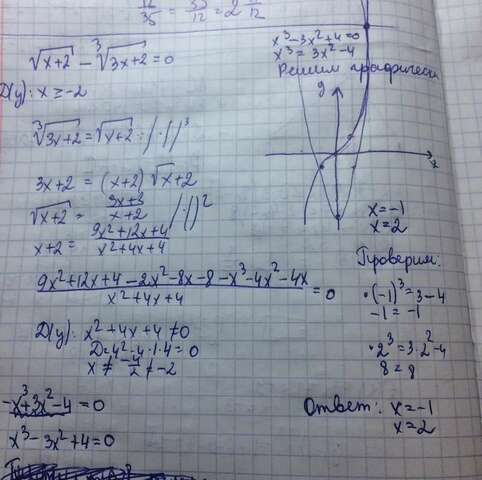 12/35 = 35/12 = 2 11/12
√x+2 − ³√3x+2 = 0
D(y): x ≥ -2
³√3x+2 = √x+2 /·()³
3x+2 = (x+2)√x+2
√x+2 = 3x+2/x+2 /()²
x+2 = 9x²+12x+4/x²+4x+4
9x²+12x+4−2x²−8x−8−x³−4x²−4x/x²+4x+4 = 0
D(y): x²+4x+4 ≠ 0
D=4²-4·1·4=0
x ≠ -4/2 ≠ -2
-x³+3x²-4=0
x³-3x²+4=0
x³-3x²+4=0
x³=3x²-4
Решим графически
y
x
x=-1
x=2
Проверим:
•(-1)³=3-4
-1=-1
•2³=3·2²-4
8=8
Ответ: x=-1
x=2